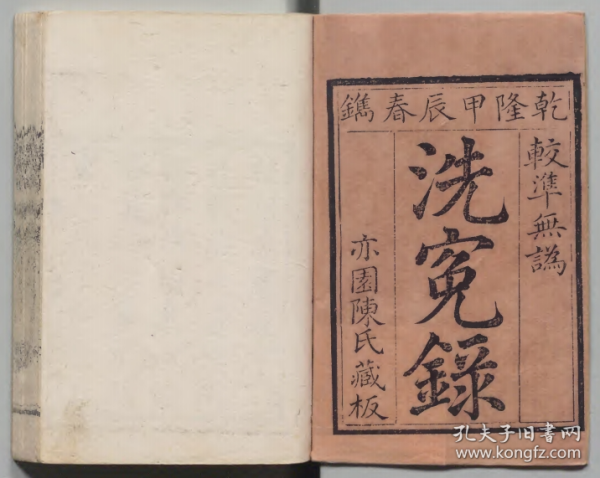 乾隆甲辰春鐫
較準無譌
洗寃錄
亦園陳氏藏板
孔夫子旧书网
www.kongfz.com